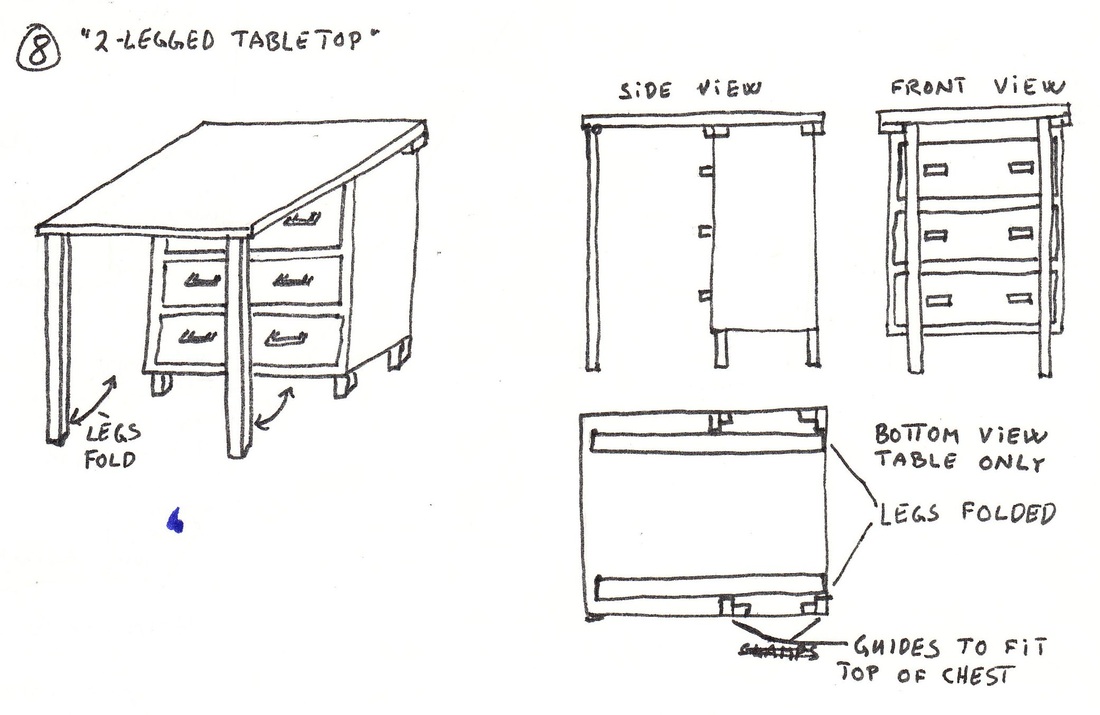 8 "2-LEGGED TABLETOP"
SIDE VIEW
FRONT VIEW
LEGS
FOLD
BOTTOM VIEW
TABLE ONLY
LEGS FOLDED
GUIDES TO FIT
TOP OF CHEST